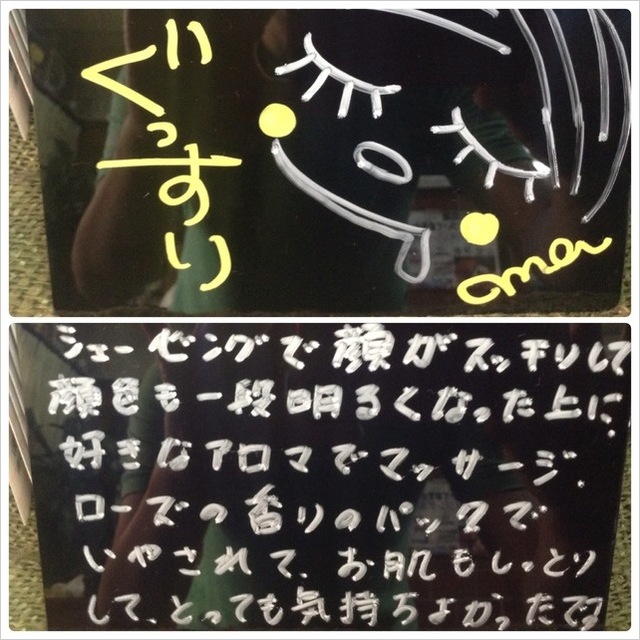 ぐっすり
mei
シェービングで顔がスッキリして
顔色も一段明るくなった上に、
好きなアロマでマッサージ、
ローズの香りのパックで
いやされて、お肌もしっとり
して、とっても気持ちよかったです